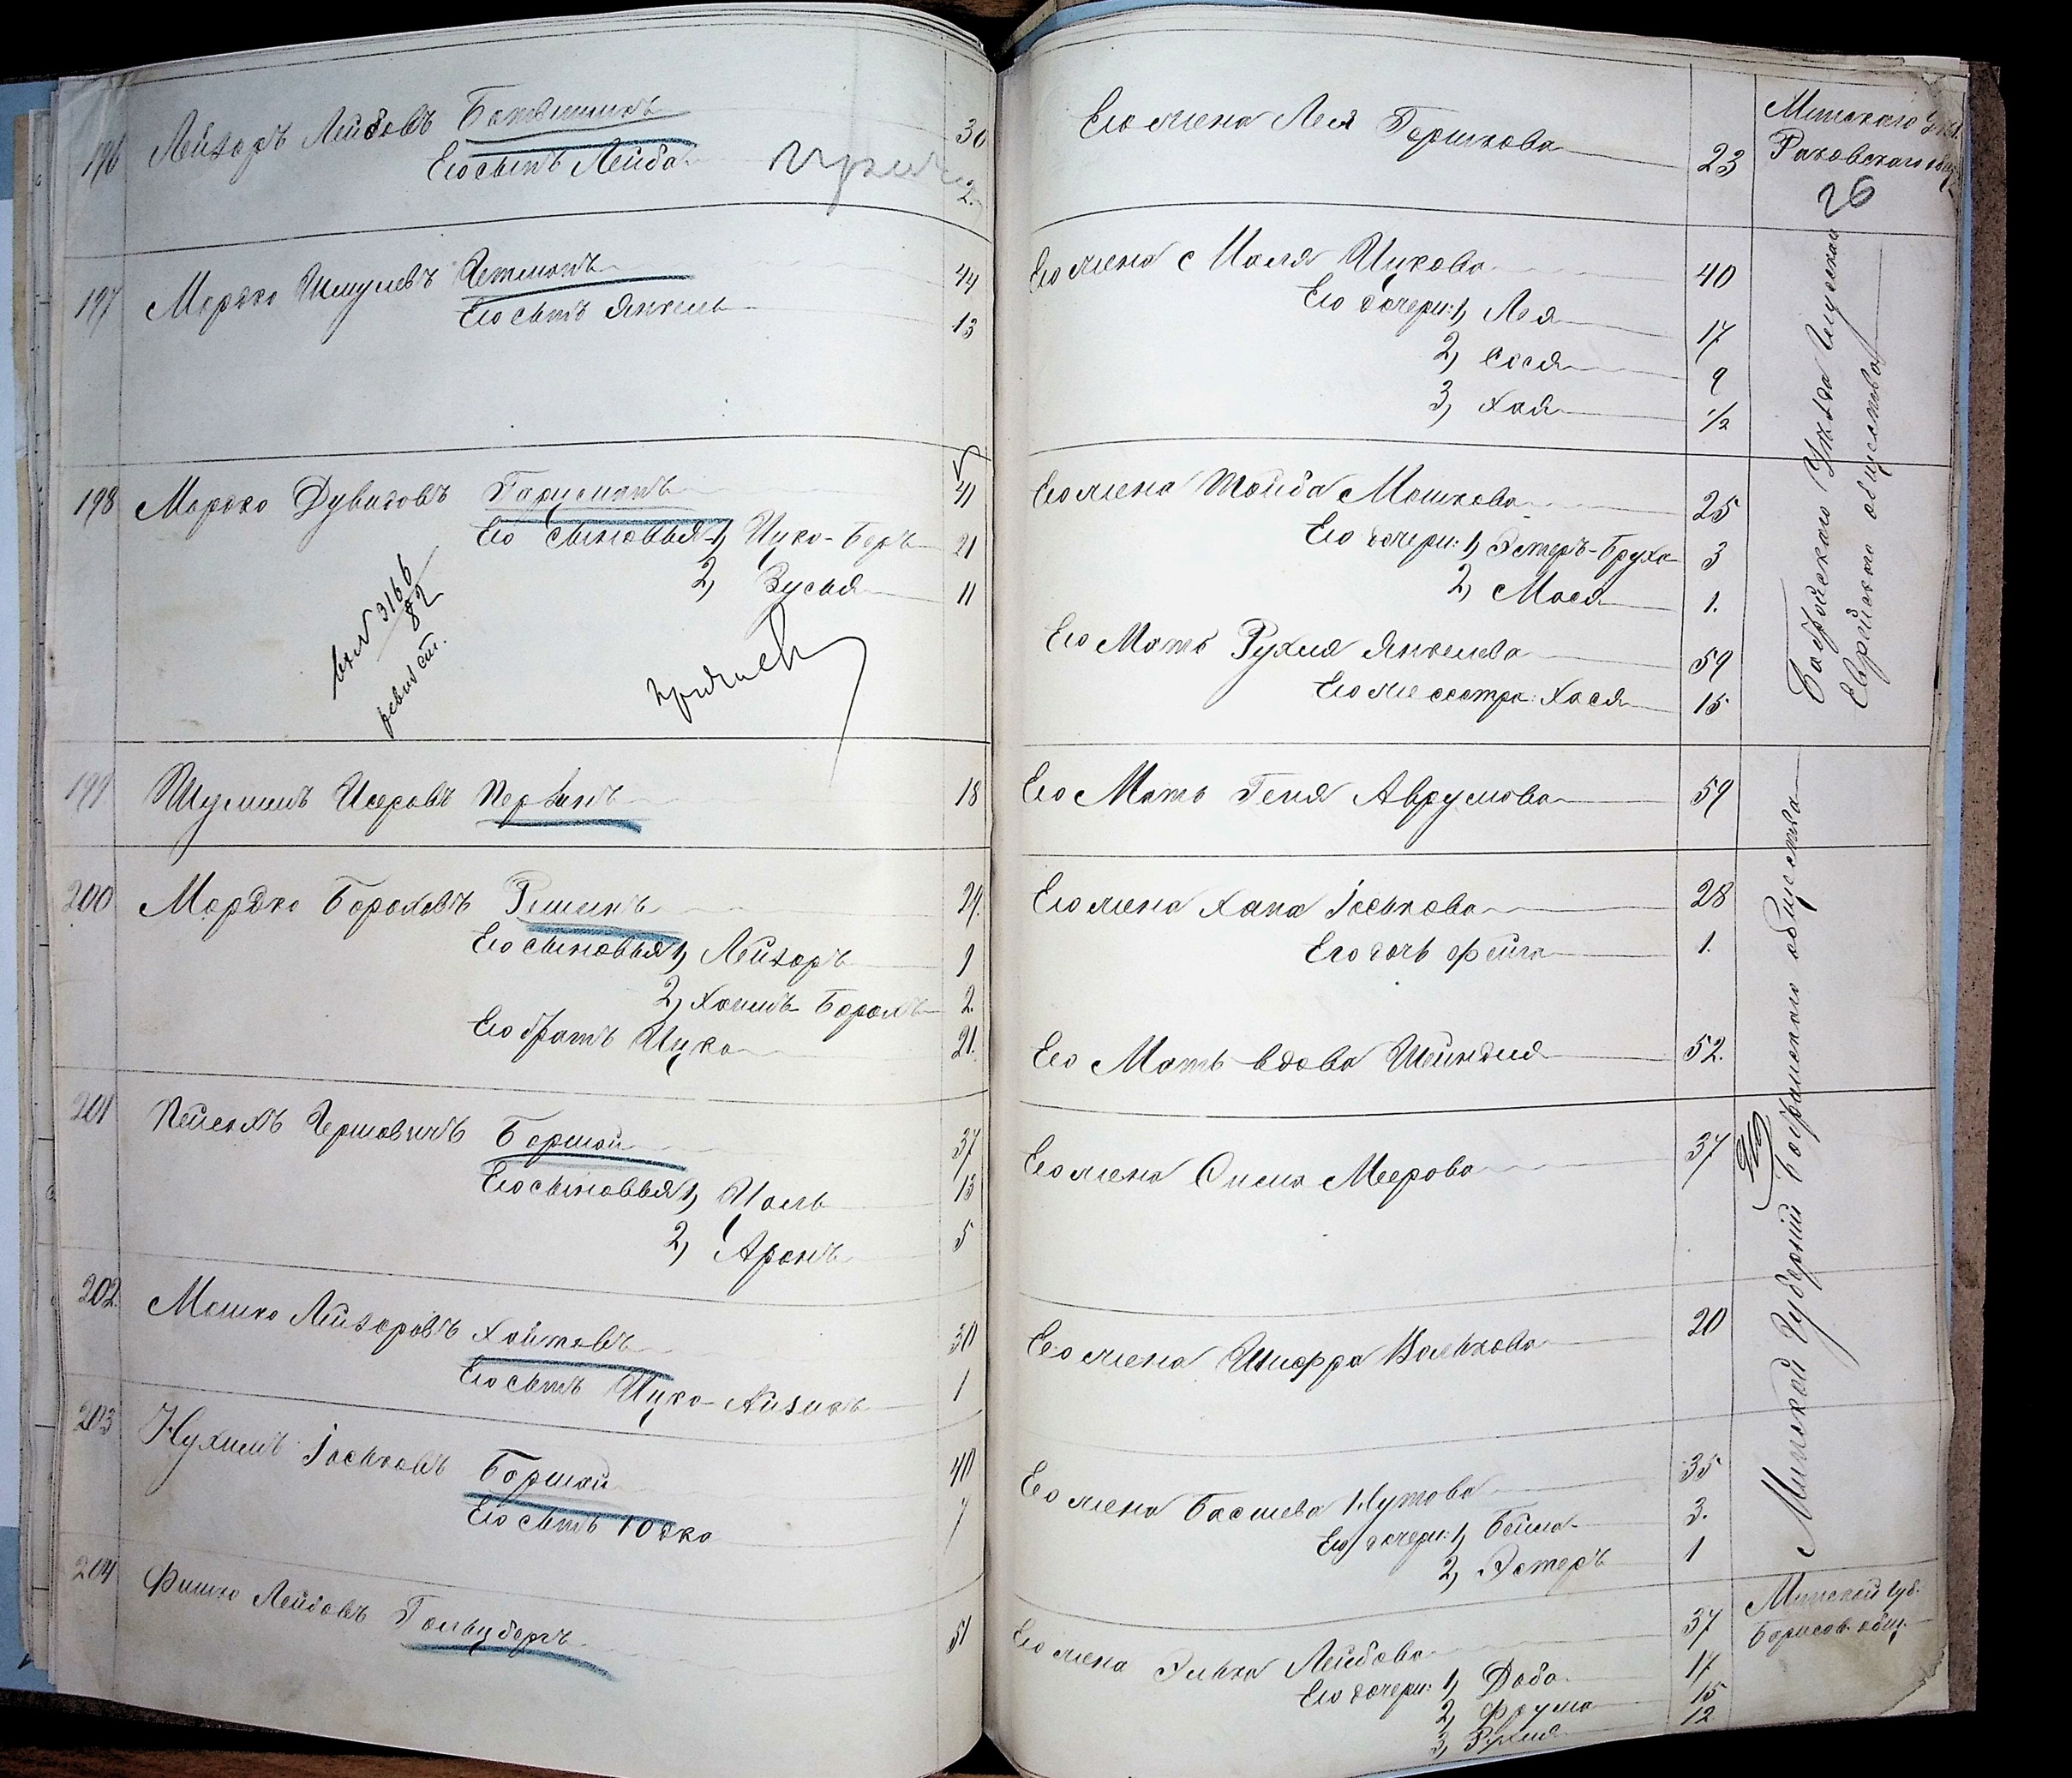 196 Лейзоръ Лейбовъ Ботвинникъ 30
Его сынъ Лейба 2.
197 Мордхо Шмулевъ Четманъ 44
Его сынъ Янкель 13
198 Мордхо Дувидовъ Гарцманъ 41
Его сыновья 1, Ицко-Беръ 21
2, Зусья 11
вх. № 3166
82
ревиз ст.
199 Шулимъ Исеровъ Первинъ 18
200 Мордхо Бороховъ 29.
Его сыновья 1, Лейзоръ 9
2, Хаимъ Борохъ 2.
Его братъ Ицко 21.
201 Пейсахъ Гершовичъ Боршай 37
Его сыновья 1, Иоель 13
2, Аронъ 5
202. Мошко Лейзоровъ Хаитовъ 30
Его сынъ Ицко-Айзикъ 1
203 Нухимъ Іоськовъ Боршай 40
Его сынъ Юдко 7
204 Фишко Лейбовъ Гольцбергъ 51
Его жена Лея Горшкова 23
Минскаго уѣз.
Раковскаго общ.
26
Его жена Ицкова 40
Его дочери: 1, Лея 17
2, Сося 9
3, Хая 1/2
Его жена Тойба Мошкова 25
Его дочери: 1, Эстеръ-Бруха 3
2, Мася 1.
Его Мать Рухля Янкелева 59
Его же сестра: Хася 15
Бобруйскаго Уѣзда Глусскаго
Еврейскаго общества
Его Мать Геня Аврумова 59
Его жена Хана Іоськова 28
Его дочь Фейга 1.
Его Мать вдова Шейндля 52.
Его жена Меерова 37
Его жена Шифра Вольхова 20
Его жена Басшева Нутова 35
Его дочери: 1, Бейла 3.
2, Эстеръ 1
Минской Губерніи общества
Его жена Элька Лейбова 37
Его дочери: 1, Доба 17
2, Фрума 15
3, Рухля 12
Минской губ.
Борисов. общ.